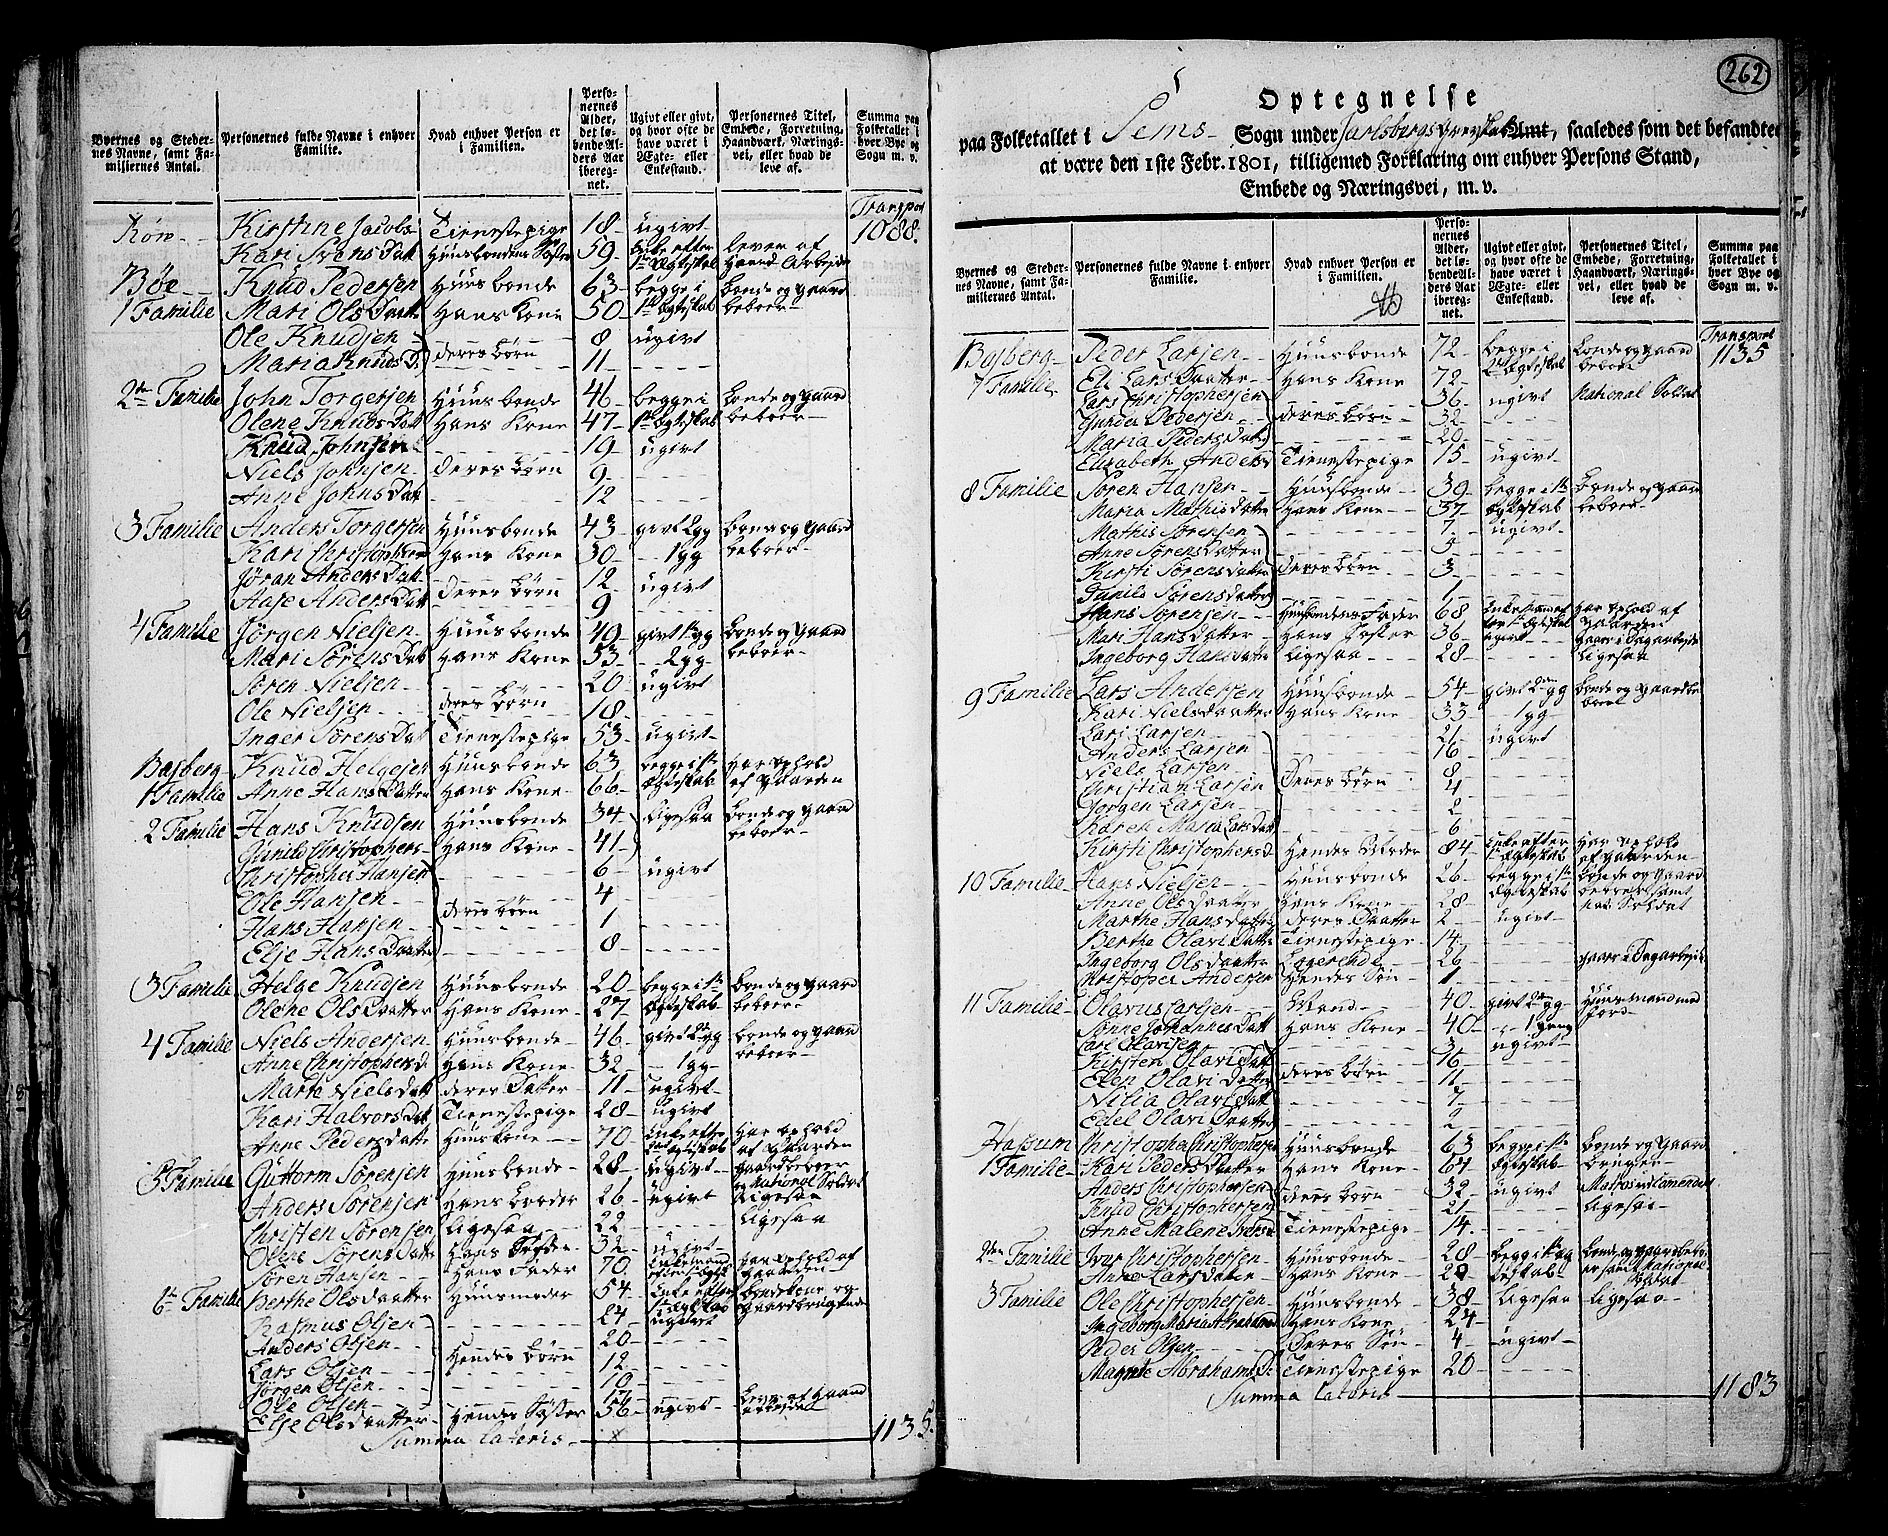 Byernes og Steder-
nes Navne, samt Fa-
miliernes Antal.
Personernes fulde Navne i enhver
Familie.
Hvad enhver Person er
i Familien.
Perso-
nernes
Alder,
det lø-
bende Al-
ders Aar
iberegnet.
Ugivt eller givt,
og hvor ofte de
have været i
Ægte- eller
Enkestand.
Personernes Titel,
Embede, Forretning,
Haandværk, Nærings-
vei, eller hvad de
leve af.
Summa paa
Folketallet i
hver Bye og
Sogn m. v.
Transport
Kirstine Jacobs Tienestepige 18 ugivt 1088.
Kari Svens Datt Huusbondens Søster 59 Enke efter 1te Ægteskab lever af Haand Arbejde
Bøe Knud Pedersen Huusbonde 63 begge i 1te Ægteskab bonde og gaard beboer
1 Familie Mari Ols Datt Hans Kone 50
Ole Knudsen deres børn 8 ugivt
Maria Knuds D. 11
2den Familie John Torgersen Huusbonde 46 begge i 1te Ægteskab bonde og gaard beboer
Olene Knuds Datt Hans Kone 47
Knud Johnsen 19 ugivt
Niels Johnsen deres børn 9
Anne Johns Datt 12
3 Familie Anders Torgersen Huusbonde 43 givt 2 gg bonde og gaard beboer
Kari Christophers Hans Kone 30 1 gg
Jøran Anders Datt deres børn 12 ugivt
Aase Anders Datt 9
4 Familie Jørgen Nielsen Huusbonde 49 givt 1te gg bonde og gaard beboer
Mari Sørens Datt Hans Kone 53 2 gg
Søren Nielsen deres børn 20 ugivt
Ole Nielsen 18
Inger Sørens Datt Tienestepige 53 ugivt
Basberg Knud Helgesen Huusbonde 63 begge i 1te Ægteskab har ophold af gaarden
1 Familie Anne Hans Datter Hans Kone 66
2 Familie Hans Knudsen Huusbonde 34 ligesaa bonde og gaard beboer
Gunild Christophers Hans Kone 41
Christopher Hansen 6 ugivt
Ole Hansen 4
Hans Hansen deres børn 1
Else Hans Datter 8
3 Familie Helge Knudsen Huusbonde 20 begge i 1te Ægteskab bonde og gaard beboer
Olene Ols Datter Hans Kone 27
4 Familie Niels Andersen Huusbonde 46 givt 2 gg bonde og gaard beboer
Anne Christophers D. Hans Kone 32 1 gg
Marta Niels Datt deres Datter 11 ugivt
Kari Halvors Datt Tienestepige 28 ugivt
Anne Peders Datter Huuskone 70 Enke efter Ægteskab har ophold af gaarden
5 Familie Guttorm Sørensen Huusbonde 28 ugivt gaardbeboer og National Soldat
Anders Sørensen Hans broder 26 ugivt ligesaa
Christen Sørensen ligesaa 22 ligesaa
Olene Sørens Datter Hans Søster 32 ugivt
Søren Hansen Hans Fader 70 Enkemand har ophold af gaarden
6te Familie Berthe Ols Datter Huusmoder 54 Enke efter 1te Ægteskab bondekone og gaardbrugende
Rasmus Olsen 24 ugivt
Anders Olsen 20
Lars Olsen Hendes børn 12
Jørgen Olsen 10
Ole Olsen
Else Ols Datter Hendes Søster 56 ugivt
Summa Lateris 1135.
262
Optegnelse
paa Folketallet i Sems Sogn under Jarlsbergs Grevskab Amt, saaledes som det befandtes
at være den 1ste Febr. 1801, tilligemed Forklaring om enhver Persons Stand,
Embede og Næringsvei, m. v.
Byernes og Steder-
nes Navne, samt Fa-
miliernes Antal.
Personernes fulde Navne i enhver
Familie.
Hvad enhver Person er
i Familien.
Perso-
nernes
Alder,
det lø-
bende Al-
ders Aar
iberegnet.
Ugivt eller givt,
og hvor ofte de
have været i
Ægte- eller
Enkestand.
Personernes Titel,
Embede, Forretning,
Haandværk, Nærings-
vei, eller hvad de
leve af.
Summa paa
Folketallet i
hver Bye og
Sogn m. v.
Transport
Basberg Peder Larsen Huusbonde 72 begge i 2det Ægteskab bonde og gaard beboer 1135
7 Familie Eli Lars Daatter Hans Kone 72
Lars Christophersen 36 ugivt National Soldat
Gunder Pedersen deres børn 32
Maria Peders Datt 20
Elisabeth Anders D Tienestepige 15 ugivt
8 Familie Søren Hansen Huusbonde 39 begge i 1te Ægteskab bonde og gaard beboer
Maria Mathis datter Hans Kone 37
Mathis Sørensen 7 ugivt
Anne Sørens Datter 5
Kirsti Sørens datter deres børn 3
Gunild Sørens datter 1
Hans Sørensen Huusbondens Fader 68 Enkemand efter 1te Ægteskab har ophold af gaarden
Mari Hans Datter Hans Søster 36 ugivt gaar i Dagarbejde
Ingeborg Hans datter ligesaa 28 ligesaa
9 Familie Lars Andersen Huusbonde 54 givt 2den gg bonde og gaardbeboer
Kari Niels daatter Hans Kone 33 1 gg
Lars Larsen 21 ugivt
Anders Larsen 16
Niels Larsen 8
Christian Larsen Deres børn 4
Jørgen Larsen 2
Karen Maria Lars Datt 6
Kirsti Christophers D. Hendes Moder 84 Enke efter 1te Ægteskab har ophold af gaarden
10 Familie Hans Nielsen Huusbonde 26 begge i 1te Ægteskab bonde og gaard beboer samt nat: Soldat
Anne Ols Daatter Hans Kone 28
Marthe Hans Datter deres Daatter 2 ugivt
Berthe Olavi Datter Tienestepige 14
Ingeborg Ols daatter Logerende 26 gaar i Dagarbejde
Kristopher Andersen Hendes Søn 1
11 Familie Olavus Carlsen Mand 40 givt 2den gg Huusmand med Jord
Sønne Johannes Datt Hans Kone 40 1 gang
Carl Olavisen 3 ugivt
Kirsten Olavi Datt 16
Elen Olavi Datter deres børn 11
Nilia Olavi Datt 7
Edel Olavi Daatter 2
Hassum Christopher Christophersen Huusbonde 63 begge i 1te Ægteskab bonde og gaard bruger
1 Familie Kari Peders Daatter Hans Kone 64
Anders Christophersen deres børn 32 ugivt
Knud Christophersen 21 ligesaa
Anne Malene Tienestepige 14
2den Familie Iver Christophersen Huusbonde 28 begge 1te gg bonde og gaardbeboer samt National Soldat
Anne Lars Daatter Hans Kone 28
3 Familie Ole Christophersen Huusbonde 38 ligesaa ligesaa
Ingeborg Maria Abraham Hans Kone 24
Peder Olsen Deres Søn 4 ugivt
Magnile Abrahams D. Tienestepige 20
Summa Lateris 1183